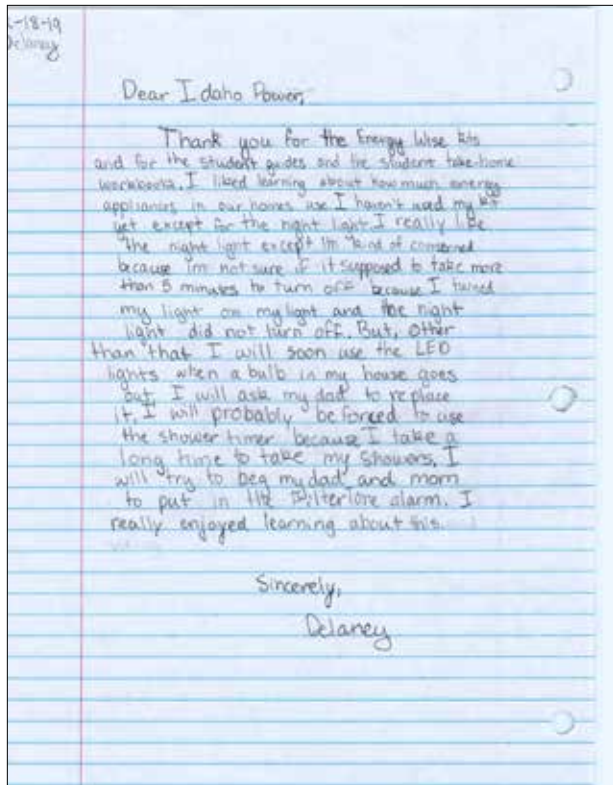 -18-19
Delaney
Dear Idaho Power,
Thank you for the Energy Wise kits
and for the student guides and the student take-home
workbooks. I liked learning about how much energy
appliances in our homes use I haven't used my kit
yet except for the night light. I really like
the night light except I'm kind of concerned
because im not sure if it supposed to take more
than 5 minutes to turn off because I turned
my light on my light and the night
light did not turn off. But, other
than that I will soon use the LED
lights when a bulb in my house goes
out, I will ask my dad to replace
it. I will probably be forced to use
the shower timer because I take a
long time to take my showers. I
will try to beg my dad and mom
to put in the alarm. I
really enjoyed learning about this.
Sincerely,
Delaney